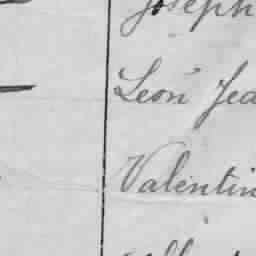 Joseph
Léon Jea
Valentin